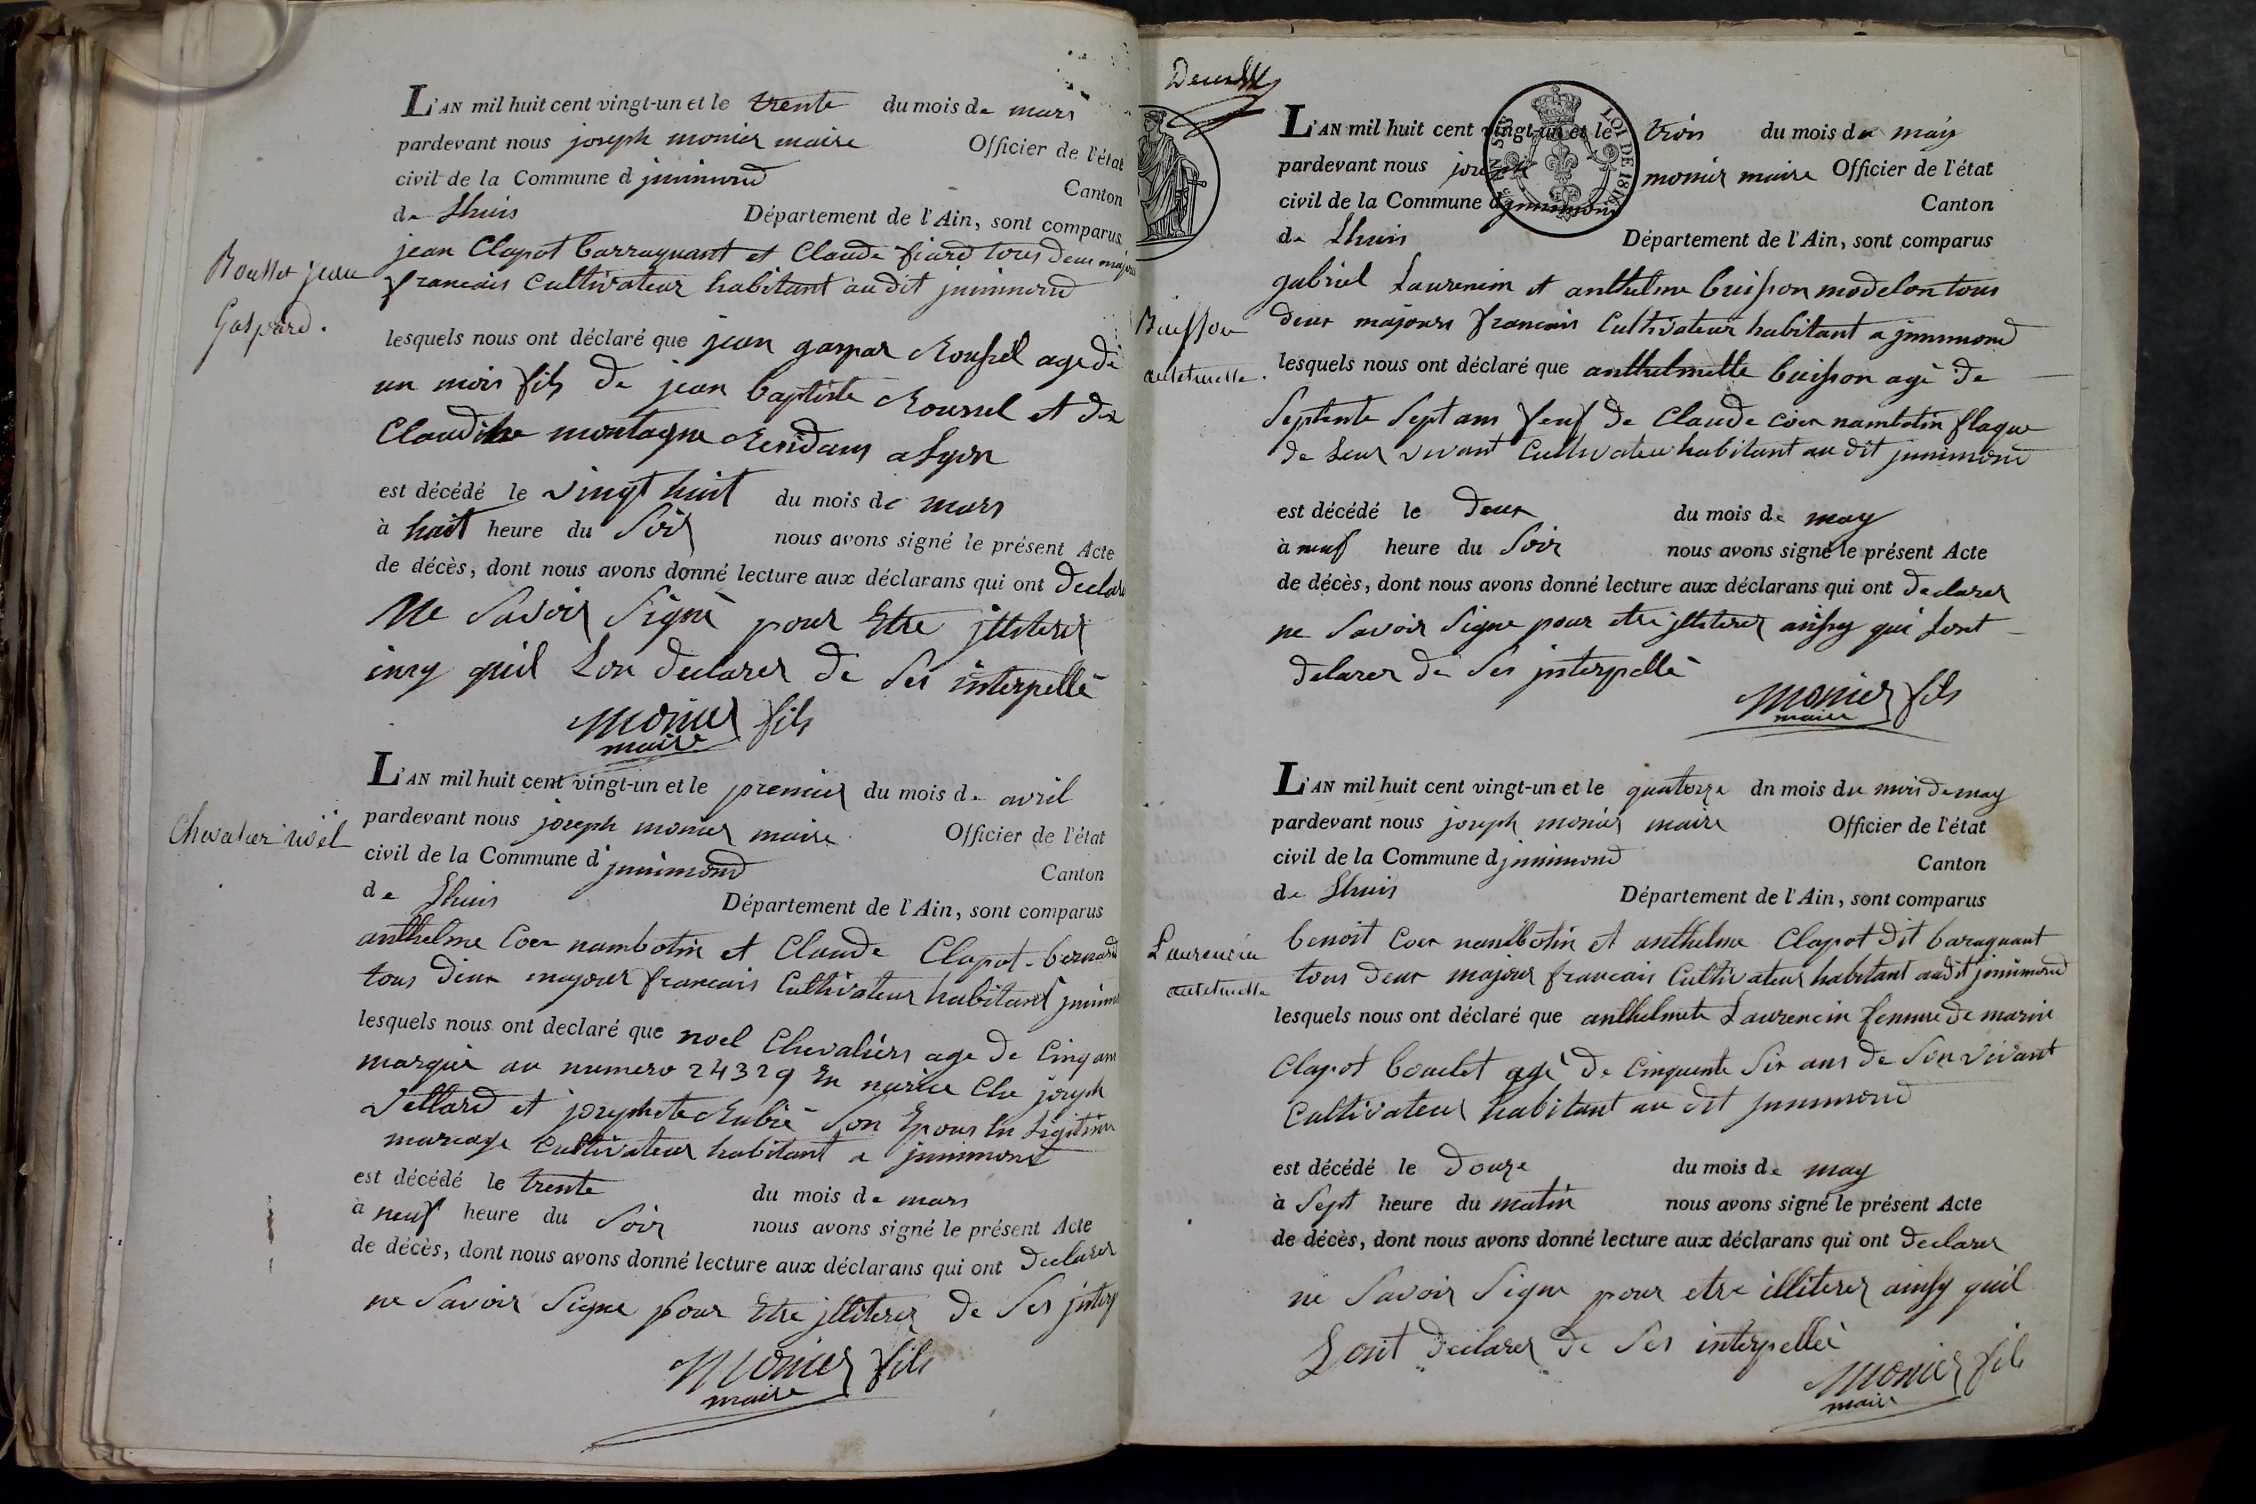 L'AN mil huit cent vingt-un et le trente du mois de mars
pardevant nous joseph monier maire Officier de l'état
civil de la Commune d jnnimond Canton
de Lhuis Département de l'Ain, sont comparus
jean Clapot barraquant et Claude fiard tous deux majeurs
francais Cultivateur habitant audit jnnimond
Roussel jean
Gaspard.
lesquels nous ont déclaré que jean gaspar Roussel age de
un mois fils de jean baptiste Roussel et de
Claudine montagne Residans a Lyon
est décédé le vingt huit du mois de mars
à huit heure du Soir nous avons signé le présent Acte
de décès, dont nous avons donné lecture aux déclarans qui ont declarer
Ne Savoir Signé pour Etre jlliterer
insy quil Lon declarer de Ses interpellé
Monier fils
maire
L'AN mil huit cent vingt-un et le premier du mois de avril
pardevant nous joseph monier maire Officier de l'état
civil de la Commune d' jnnimond Canton
de Lhuis Département de l'Ain, sont comparus
Chevalier noël
anthelme Coer nambotin et Claude Clapot-bernard
tous deux majour francais Cultivateur habitant jnnimond
lesquels nous ont declaré que noel Chevaliers age de Cinq ans
marqué au numero 24329 En nurice Che joseph
Vettard et josephete Rubié Son Epous En Legitime
mareage Cultivateur habitant a jnnimont
est décédé le trente du mois de mars
à neuf heure du Soir nous avons signé le présent Acte
de décès, dont nous avons donné lecture aux déclarans qui ont declarer
ne Savoir Signe pour Etre jlliterer de Ses jnterp
Monier fils
maire
LOI DE 1816
L'AN mil huit cent vingt-un et le trois du mois de may
pardevant nous joseph monier maire Officier de l'état
civil de la Commune d jnnimond Canton
de Lhuis Département de l'Ain, sont comparus
gabriel Laurencin et anthelme buisson modelon tous
deux majours francais Cultivateur habitant a jnnimond
Buisson
antelmette.
lesquels nous ont déclaré que anthelmette buisson agé de
Septente Sept ans feuf de Claude coer nambotin flaque
de Leur vivant Cultivateur habitant au dit jnnimond
est décédé le deux du mois de may
à neuf heure du Soir nous avons signé le présent Acte
de décès, dont nous avons donné lecture aux déclarans qui ont declarer
ne Savoir Signe pour etre jlliterer ainsy qui Lont
delarer de Ses jnterpellé
Monier fils
maire
L'AN mil huit cent vingt-un et le quatorze dn mois du mois de may
pardevant nous joseph monier maire Officier de l'état
civil de la Commune d jnnimond Canton
de Lhuis Département de l'Ain, sont comparus
benoit Coer nambotin et anthelme Clapot dit baraquant
tous deux majour francais Cultivateur habitant audit jnnimond
Laurencin
antelmette
lesquels nous ont déclaré que anthelmete Laurencin femme de marin
Clapot bouclet agé de Cinquente Six ans de Son vivant
Cultivateur habitant au dit jnnimond
est décédé le douze du mois de may
à Sept heure du matin nous avons signé le présent Acte
de décès, dont nous avons donné lecture aux déclarans qui ont declarer
ne Savoir Signe pour etre illiterer ainsy quil
Lont declarer de Ses interpellé
Monier fils
maire